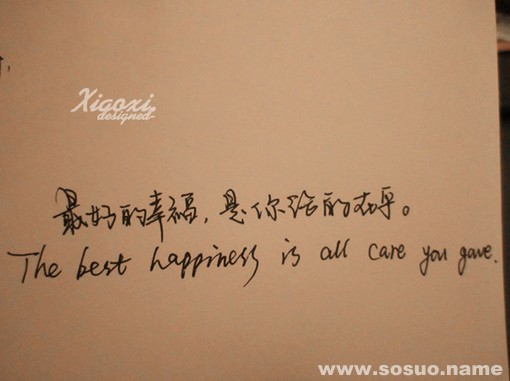 Xigoxi
designed-
最好的幸福，是你给的在乎。
The best happiness is all care you gave.
www.sosuo.name